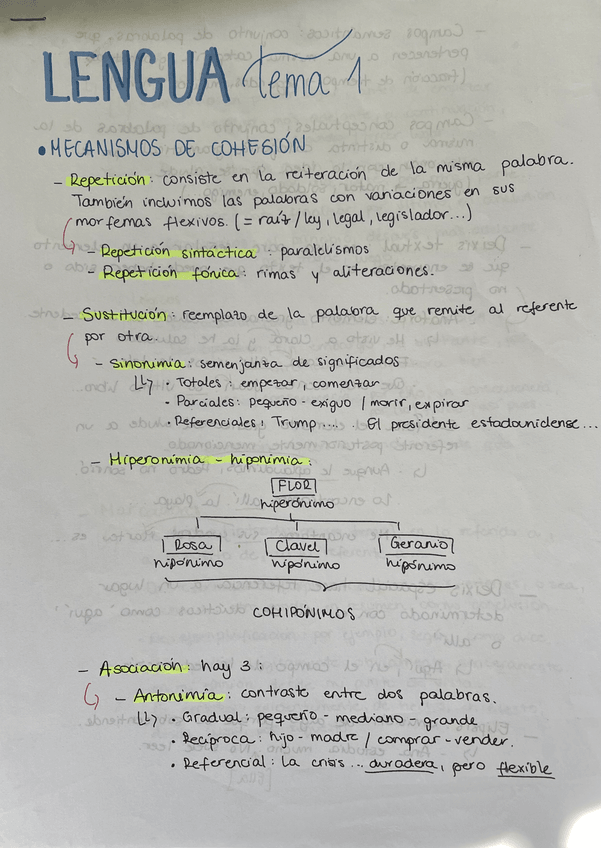 LENGUA tema 1
• MECANISMOS DE COHESIÓN
- Repetición: consiste en la reiteración de la misma palabra.
También incluimos las palabras con variaciones en sus
morfemas flexivos. (= raíz / ley, legal, legislador...)
- Repetición sintáctica: paralelismos
- Repetición fónica: rimas y aliteraciones.
- Sustitución: reemplazo de la palabra que remite al referente
por otra.
- Sinonimia: semenjanza de significados
• Totales: empezar, comenzar
• Parciales: pequeño - exiguo / morir, expirar
• Referenciales: Trump..... El presidente estadounidense...
- Hiperonimia - hiponimia:
FLOR
hiperónimo
Rosa Clavel Geranio
hipónimo hipónimo hipónimo
COHIPÓNIMOS
- Asociación: hay 3:
- Antonimia: contraste entre dos palabras.
• Gradual: pequeño - mediano - grande
• Recíproca: hijo - madre / comprar - vender.
• Referencial: la crisis... duradera, pero flexible